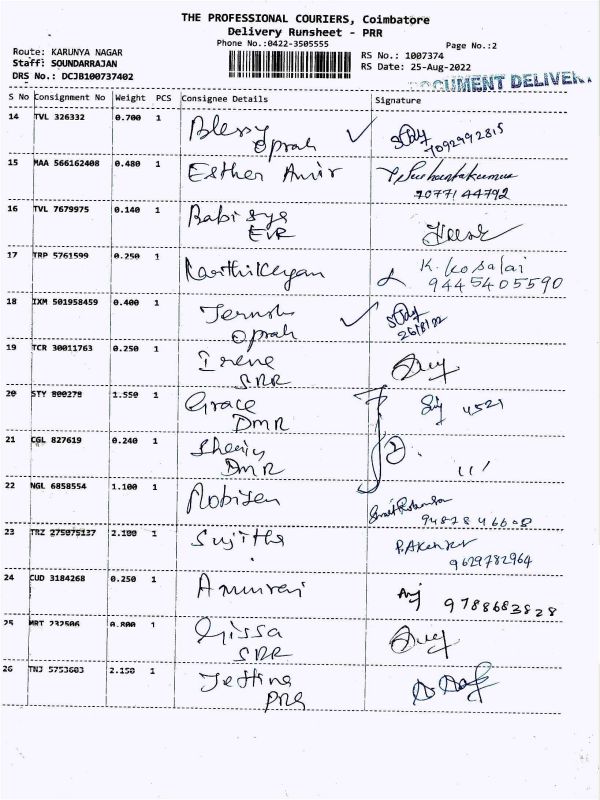 THE PROFESSIONAL COURIERS, Coimbatore
Delivery Runsheet - PRR
Phone No.:0422-3505555
Page No.:2
Route: KARUNYA NAGAR
Staff: SOUNDARRAJAN
DRS No.: DCJB100737402
RS No.: 1007374
RS Date: 25-Aug-2022
DOCUMENT DELIVERY
S No Consignment No Weight PCS Consignee Details Signature
14 TVL 326332 0.700 1 Blessy
Oprah
7092992815
15 MAA 566162408 0.480 1 Esther Amir
7077144792
16 TVL 7679975 0.140 1
EVR
17 TRP 5761599 0.250 1 Karthikeyan K. Kosalai
9445405590
18 IXM 501958459 0.400 1
Oprah
26/8/22
19 TCR 30011763 0.250 1 Irene
SRR
20 STY 800278 1.550 1 Grace 4521
DMR
21 CGL 827619 0.240 1
DMR
22 NGL 6858554 1.100 1
23 TRZ 275075137 2.100 1 Sujitha
9629782964
24 CUD 3184268 0.250 1
9788683828
25 MRT 232506 0.800 1 Gissa
SRR
26 TNJ 5753603 2.150 1